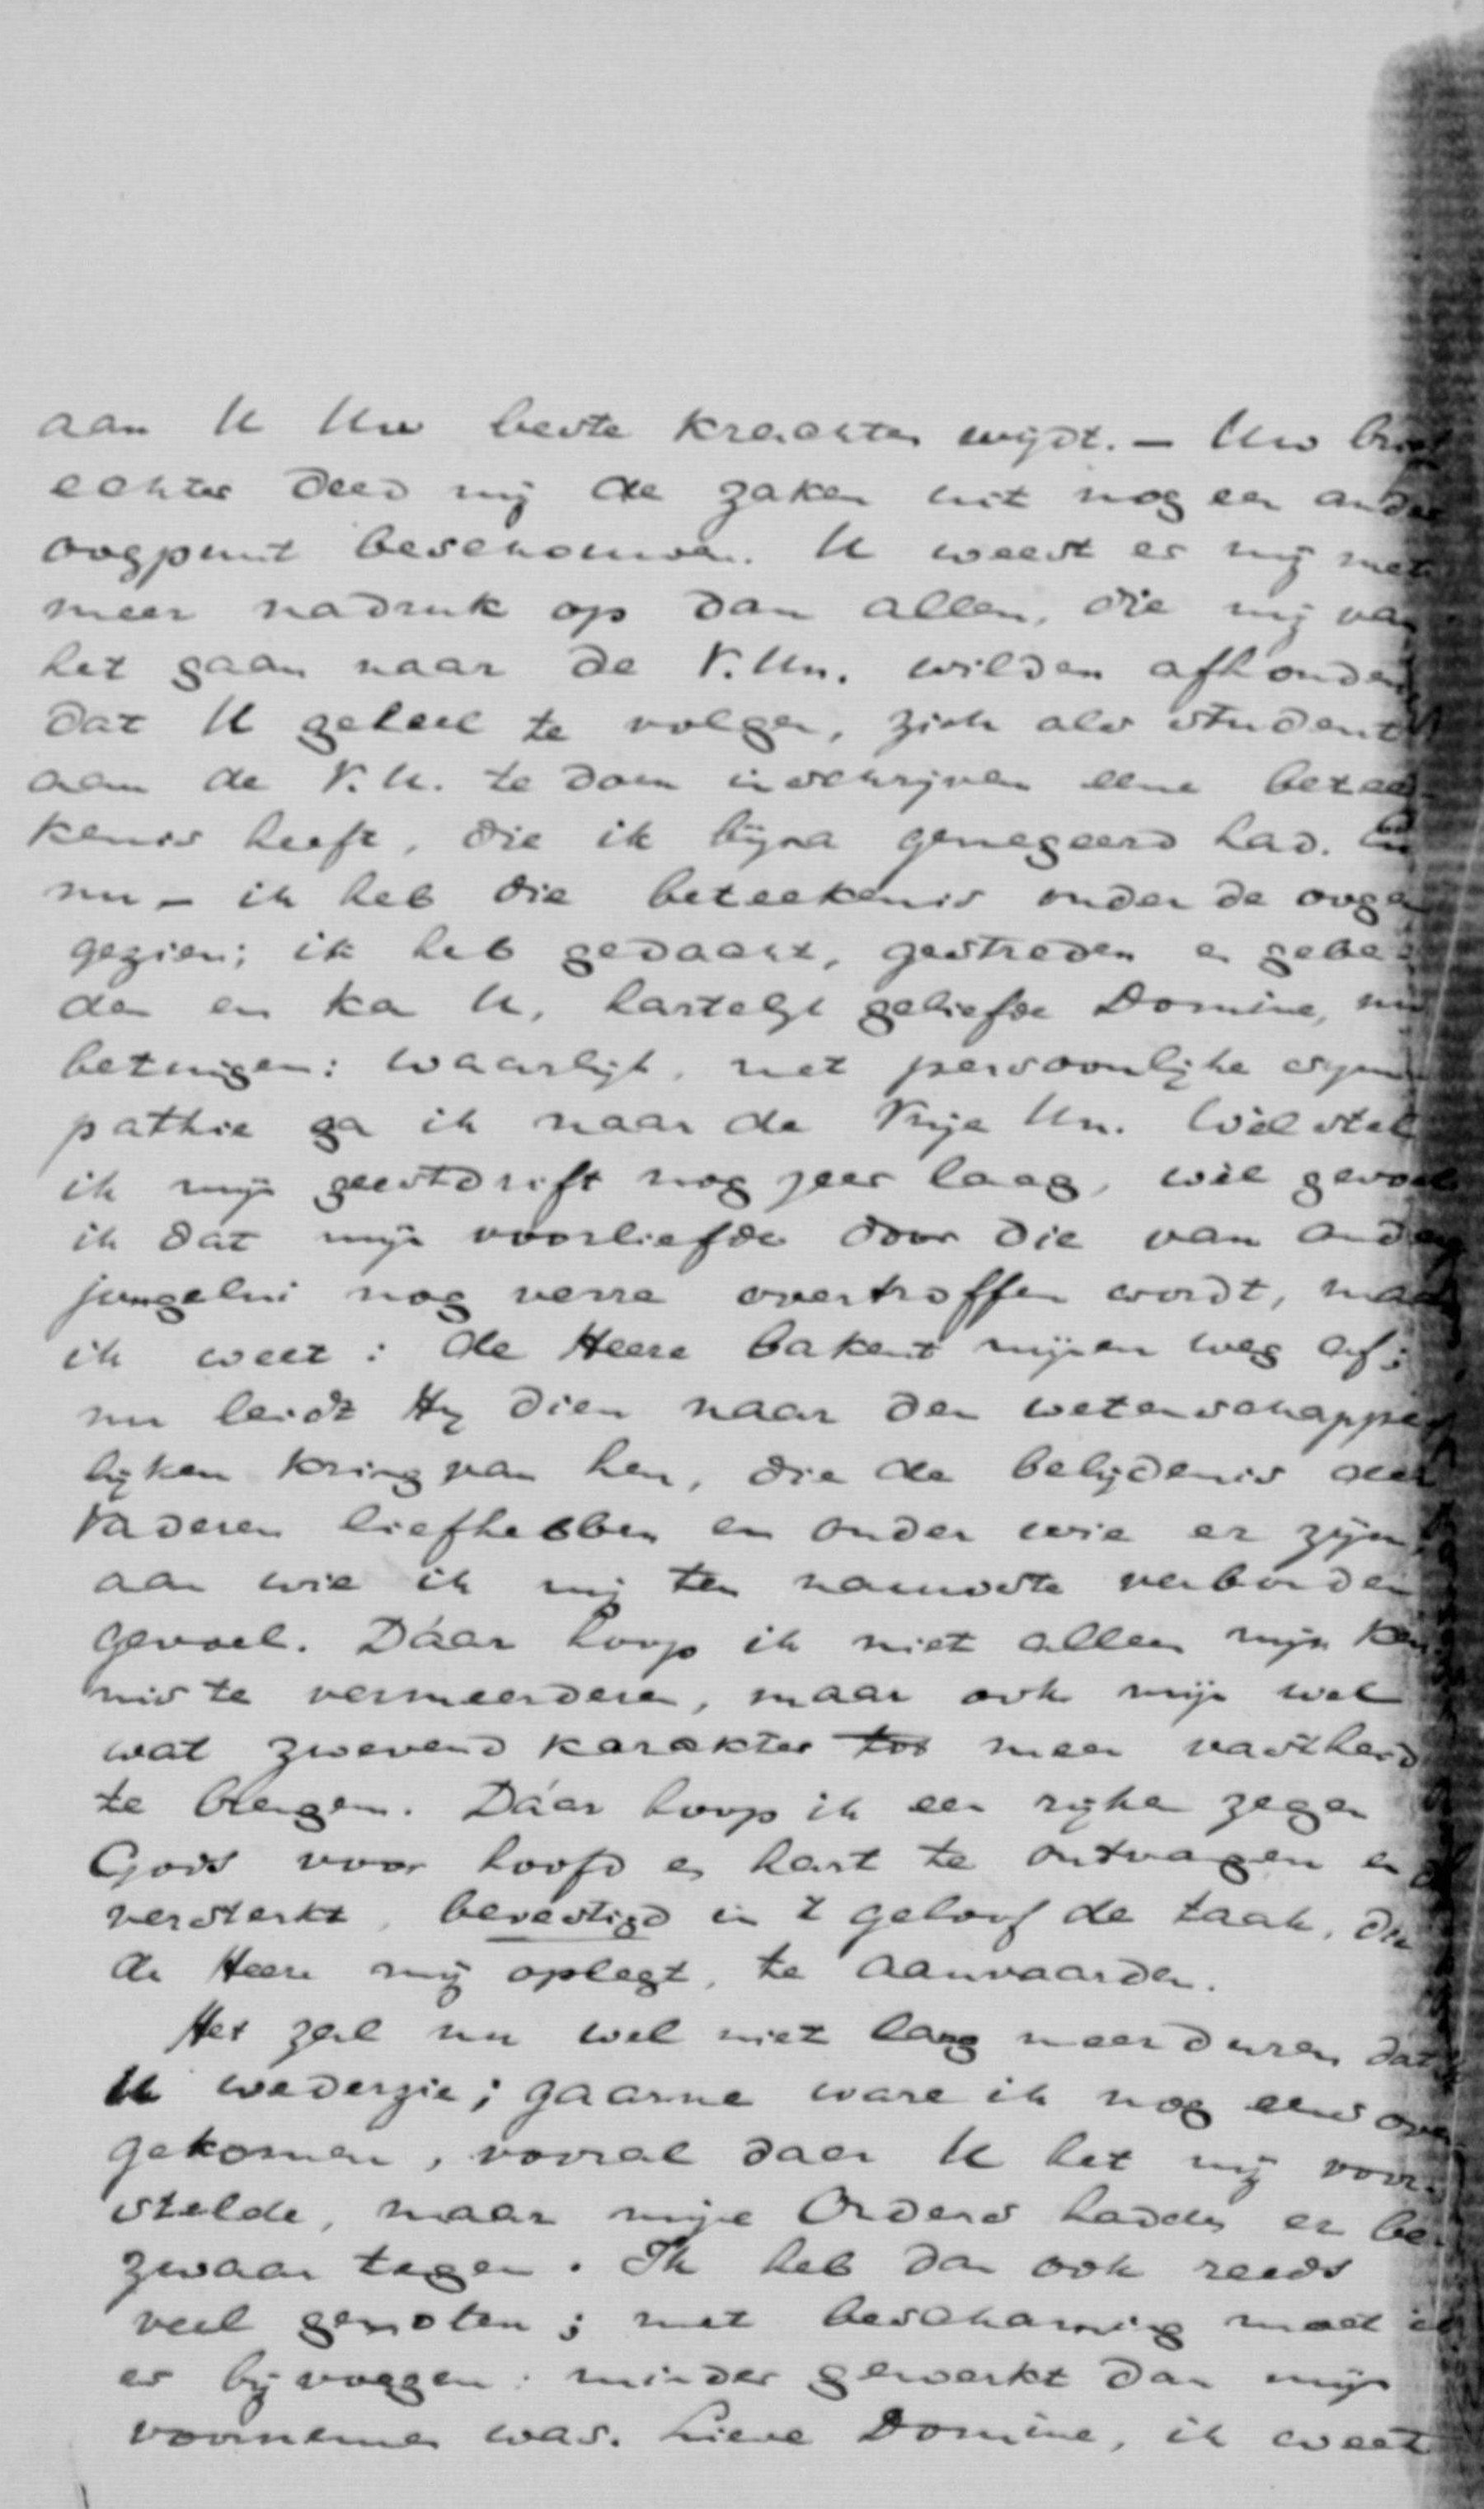 aan U Uw beste krachten wijdt. — Uw brief
echter deed mij de zaken uit nog een ander
oogpunt beschouwen. U weest er mij met
meer nadruk op dan allen, die mij van
het gaan naar de V. Un. wilden afhouden,
dat U geheel te volgen, zich als student
aan de V. U. te doen inschrijven eene betee-
kenis heeft, die ik bijna genegeerd had. En
nu — ik heb die beteekenis onder de oogen
gezien; ik heb gedacht, gestreden en gebe-
den en ka U, hartelijk geliefde Domine, nu
betuigen: waarlijk, met persoonlijke sym-
pathie ga ik naar de Vrije Un. Wèl stel
ik mijn geestdrift nog zeer laag, wèl gevoel
ik dat mijn voorliefde door die van andere
jongelui nog verre overtroffen wordt, maar
ik weet: de Heere bakent mijnen weg af;
nu leidt Hij dien naar den wetenschappe-
lijken kring van hen, die de belijdenis der
Vaderen liefhebben en onder wie er zijn,
aan wie ik mij ten nauwste verbonden
gevoel. Dáár hoop ik niet alleen mijn ken-
nis te vermeerderen, maar ook mijn wel
wat zwevend karakter tot meer vastheid
te brengen. Dáár hoop ik een rijken zegen
Gods voor hoofd en hart te ontvangen en
versterkt, bevestigd in 't geloof de taak, die
de Heere mij oplegt, te aanvaarden.
Het zal nu wel niet lang meer duren dat
U wederzie; gaarne ware ik nog eens over
gekomen, vooral daar U het mij voor-
stelde, maar mijne Ouders hadden er be-
zwaar tegen. Ik heb dan ook reeds
veel genoten; met beschaming moet ik
er bijvoegen: minder gewerkt dan mijn
voornemen was. Lieve Domine, ik weet